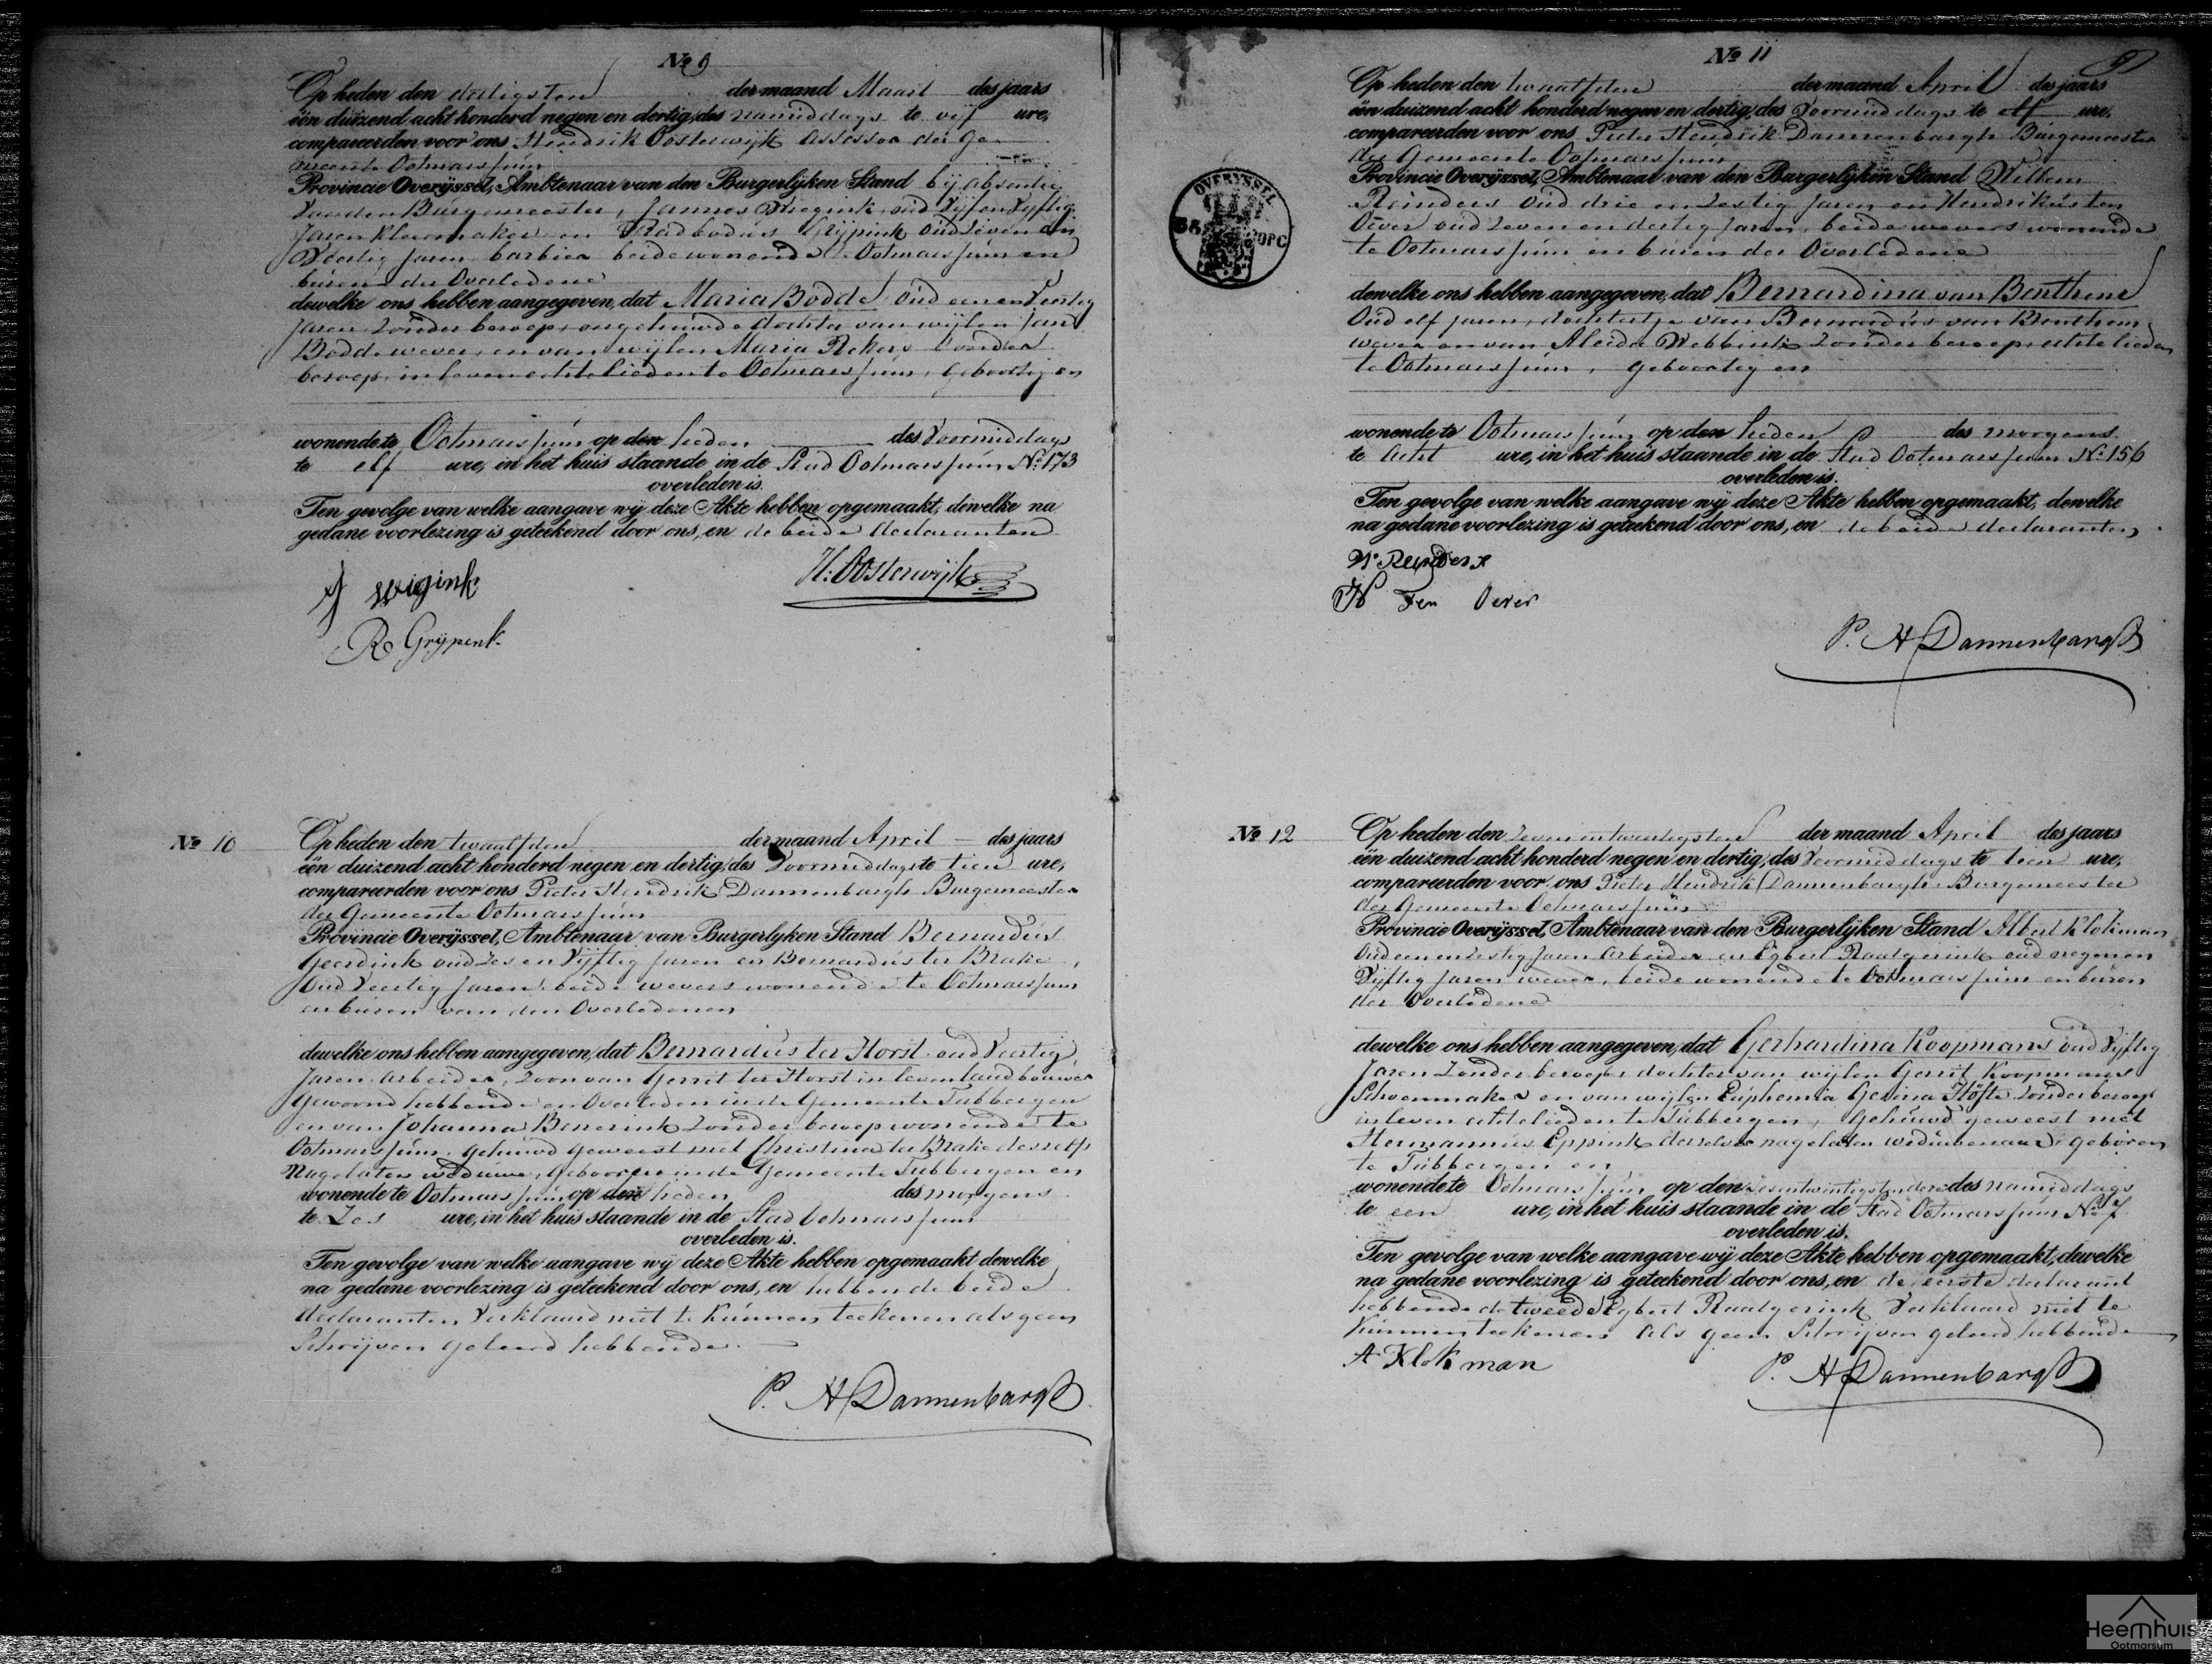 No 9
Op heden den dertigsten der maand Maart des jaars
één duizend acht honderd negen en dertig, des namiddags te vijf ure,
compareerden voor ons Hendrik Oosterwijk Assessor der Ge
meente Ootmarssum
Provincie Overijssel, Ambtenaar van den Burgerlijken Stand bij absentie
van den Burgemeester, Jannes Wiegink, oud Vijf en Vijftig
Jaren Kleermaker en Radbodus Grijpink oud Zeven en
Veertig Jaren barbier beide wonende te Ootmarssum en
buren der Overledene
dewelke ons hebben aangegeven, dat Maria Bodde oud een en Veertig
Jaren zonder beroep, ongehuwde dochter van wijlen Jan
Bodde wever, en van wijlen Maria Rekers zonder
beroep, in leven echtelieden te Ootmarssum, Geboortig en
wonende te Ootmarssum op den heden des Voormiddags
te elf ure, in het huis staande in de Stad Ootmarssum No 173
overleden is.
Ten gevolge van welke aangave wij deze Akte hebben opgemaakt, dewelke na
gedane voorlezing is geteekend door ons, en de beide declaranten
J Wigink
H: Oosterwijk
R Grijpenk
No 10
Op heden den twaalfden der maand April des jaars
één duizend acht honderd negen en dertig, des Voormiddags te tien ure,
compareerden voor ons Pieter Hendrik Dannenbargh Burgemeester
der Gemeente Ootmarssum
Provincie Overijssel, Ambtenaar van den Burgerlijken Stand Bernardus
Geerdink oud Zes en Vijftig Jaren en Bernardus ter Brake,
Oud Veertig Jaren, beide wevers wonende te Ootmarssum
en buren van den Overledenen
dewelke ons hebben aangegeven, dat Bernardus ter Horst oud Veertig
Jaren Arbeider, Zoon van Gerrit ter Horst in leven landbouwer
Gewoond hebbende en Overleden in de Gemeente Tubbergen
en van Johanna Benerink Zonder beroep wonende te
Ootmarssum, gehuwd geweest met Christina ter Brake deszelfs
Nagelaten weduwe, Geboortig in de Gemeente Tubbergen en
wonende te Ootmarssum op den heden des morgens
te Zes ure, in het huis staande in de Stad Ootmarssum
overleden is.
Ten gevolge van welke aangave wij deze Akte hebben opgemaakt dewelke
na gedane voorlezing is geteekend door ons, en hebben de beide
declaranten Verklaard niet te Kunnen teekenen als geen
Schrijven geleerd hebbende.
P. H Dannenbargh
No 11
9
Op heden den twaalfden der maand April des jaars
één duizend acht honderd negen en dertig, des Voormiddags te elf ure,
compareerden voor ons Pieter Hendrik Dannenbargh Burgemeester
der Gemeente Ootmarssum
Provincie Overijssel, Ambtenaar van den Burgerlijken Stand Willem
Reinders Oud drie en Zestig Jaren en Hendrikus ten
Oever oud Zeven en dertig Jaren, beide wevers wonende
te Ootmarssum en buren der Overledene
OVERYSSEL
OPC
dewelke ons hebben aangegeven, dat Bernardina van Benthem
Oud elf Jaren, dochtertje van Bernardus van Benthem
wever en van Aleida Webbink Zonder beroep, echtelieden
te Ootmarssum, Geboortig en
wonende te Ootmarssum op den heden des morgens
te Acht ure, in het huis staande in de Stad Ootmarssum No 156
overleden is.
Ten gevolge van welke aangave wij deze Akte hebben opgemaakt, dewelke
na gedane voorlezing is geteekend door ons, en de beide declaranten
W Reinders
H Ten Oever
P. H Dannenbargh
No 12
Op heden den Zeven en twintigsten der maand April des jaars
één duizend acht honderd negen en dertig, des Voormiddags te tien ure,
compareerden voor ons Pieter Hendrik Dannenbargh Burgemeester
der Gemeente Ootmarssum
Provincie Overijssel, Ambtenaar van den Burgerlijken Stand Albert Klokman
Oud een en Zestig Jaren Arbeider en Egbert Raatgerink oud negen en
Vijftig Jaren wever, beide wonende te Ootmarssum en buren
der Overledene
dewelke ons hebben aangegeven, dat Gerhardina Koopmans oud Vijftig
Jaren Zonder beroep, dochter van wijlen Gerrit Koopmans
Schoenmaker en van wijlen Euphemia Gesina Höfte Zonder beroep
in leven echtelieden te Tubbergen, Gehuwd geweest met
Hermannus Eppink derzelver nagelaten weduwenaar, geboren
te Tubbergen en
wonende te Ootmarssum op den Zes en twintigsten dezer des namiddags
te een ure, in het huis staande in de Stad Ootmarssum No 7
overleden is.
Ten gevolge van welke aangave wij deze Akte hebben opgemaakt, dewelke
na gedane voorlezing is geteekend door ons, en de eerste declarant
hebbende de tweede Egbert Raatgerink Verklaard niet te
Kunnen teekenen als geen Schrijven geleerd hebbende
A Klokman
P. H Dannenbargh
Heemhuis
Ootmarsum